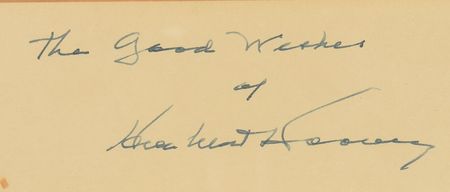 The Good Wishes
of
Herbert Hoover